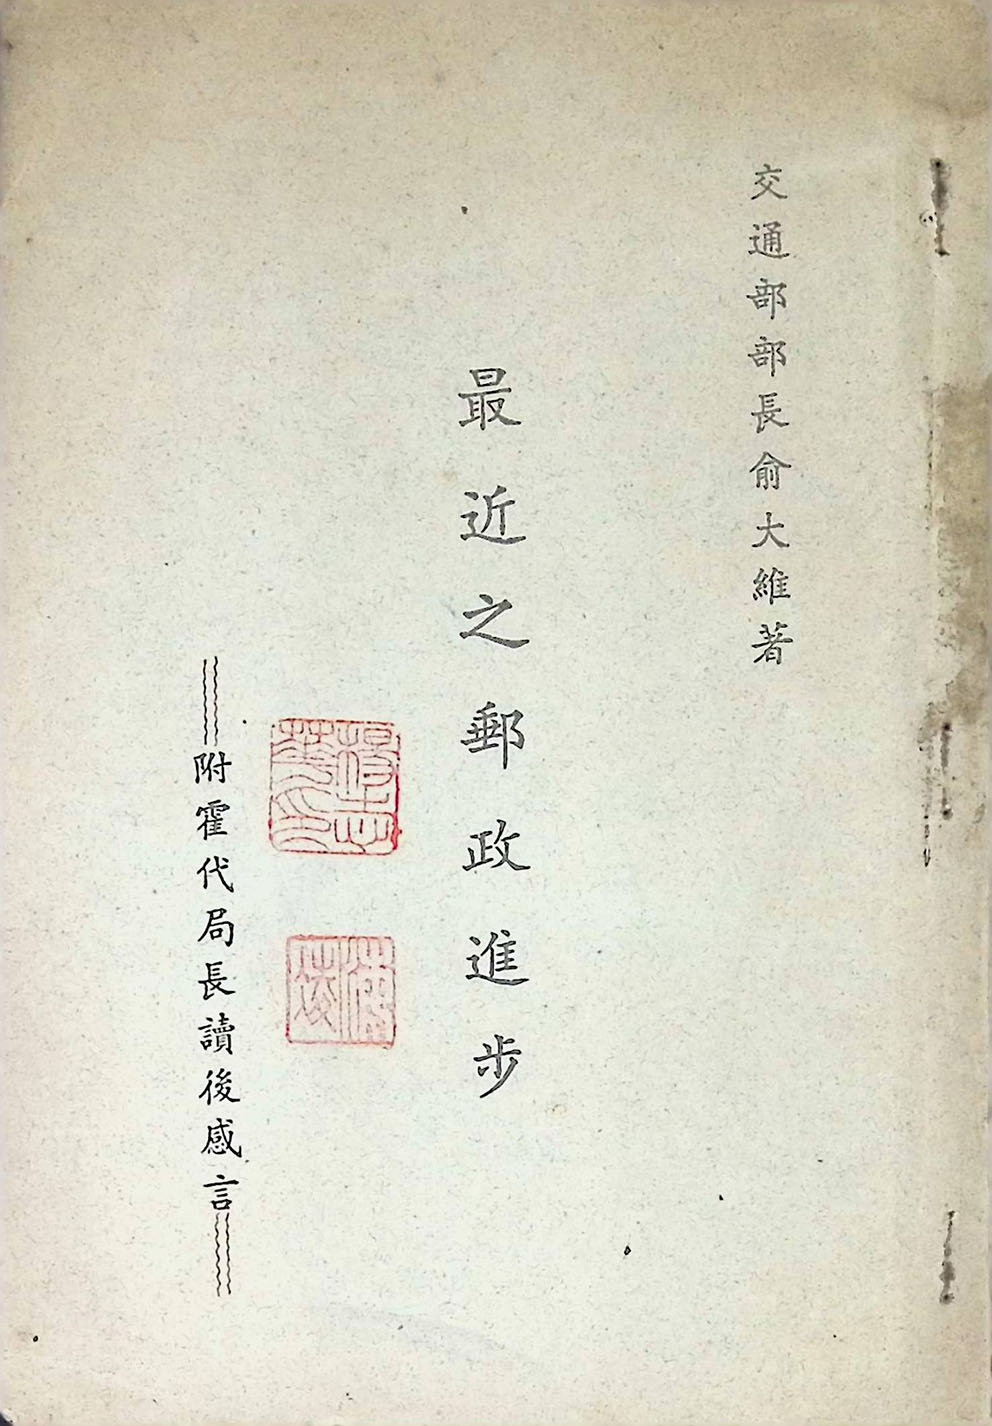 交通部部長俞大維著
最近之郵政進步
附霍代局長讀後感言